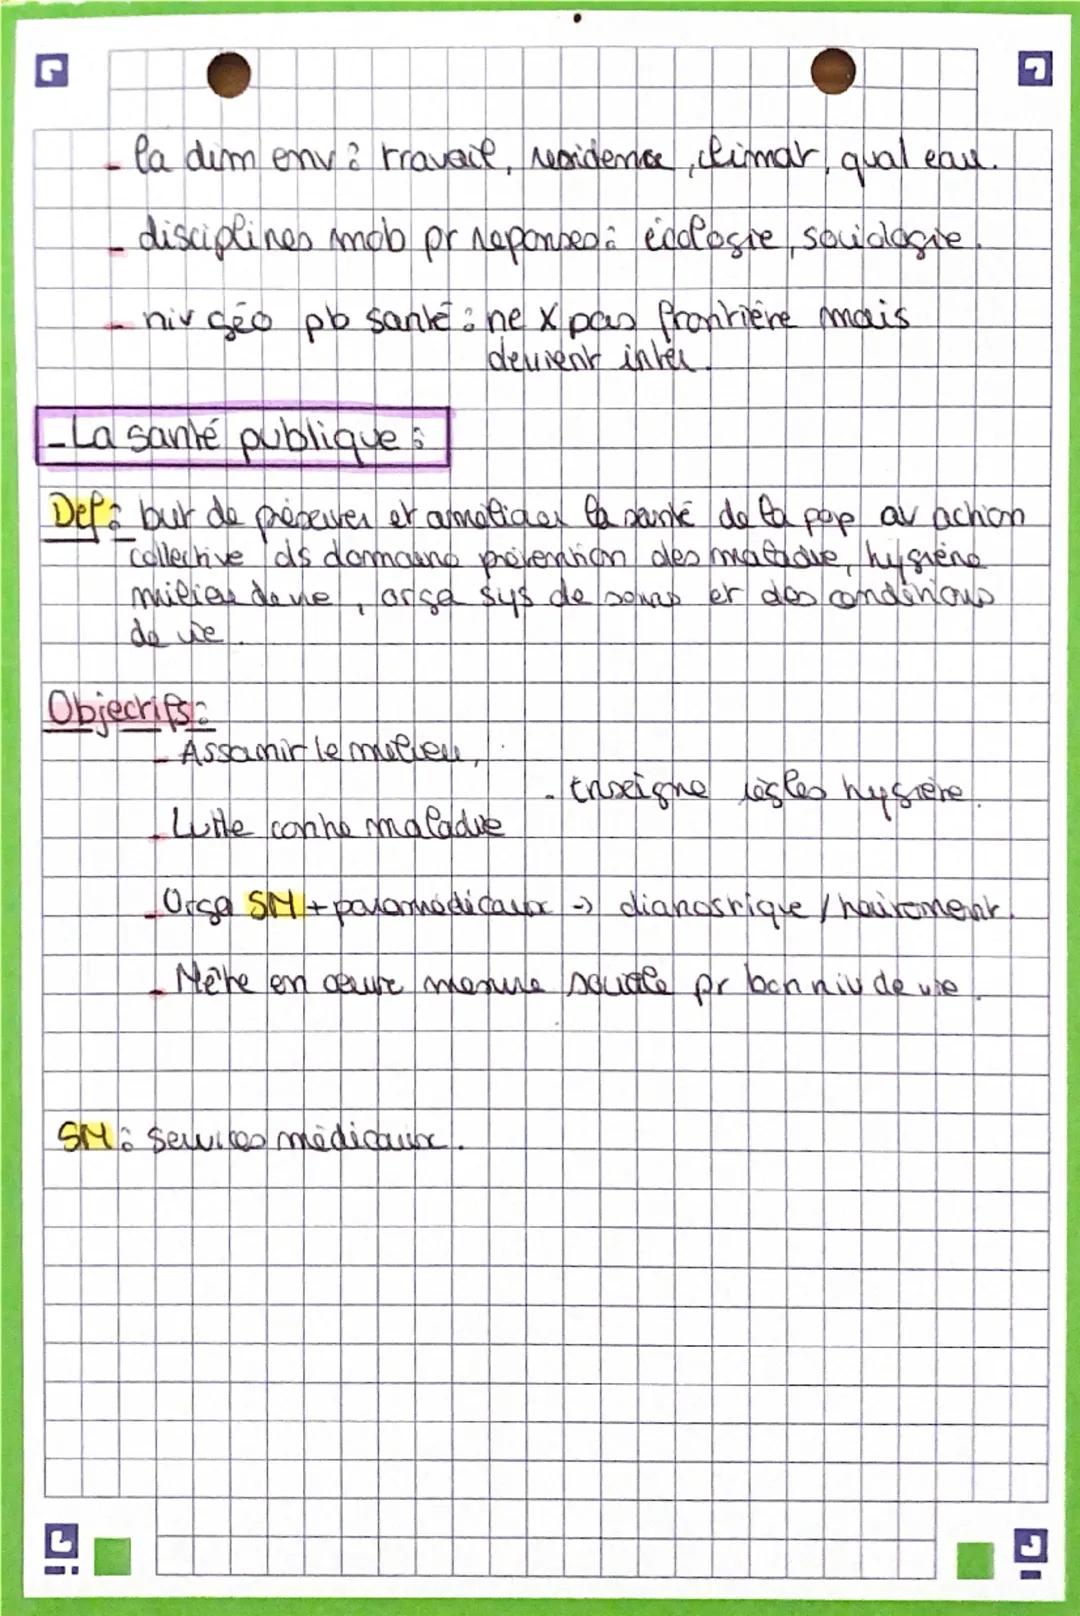 - la dim env : travail, residence, climat, qual eau.
- disciplines mob pr reponses : écologie, sociologie.
- niv géo pb santé : ne x pas frontière mais
devient inter.
- La santé publique :
Def : but de préserver et ameliorer la santé de la pop av action
collective ds domaine prévention des maladie, hygiène
milieu de vie, orga sys de soins et des conditions
de vie.
Objectifs :
- Assainir le milieu,
- Enseigne règles hygiène.
- Lutte contre maladie
- Orga SM + paramédicaux → dianostique / traitement.
- Mettre en œuvre mesure sociale pr bon niv de vie.
SM : Services médicaux.